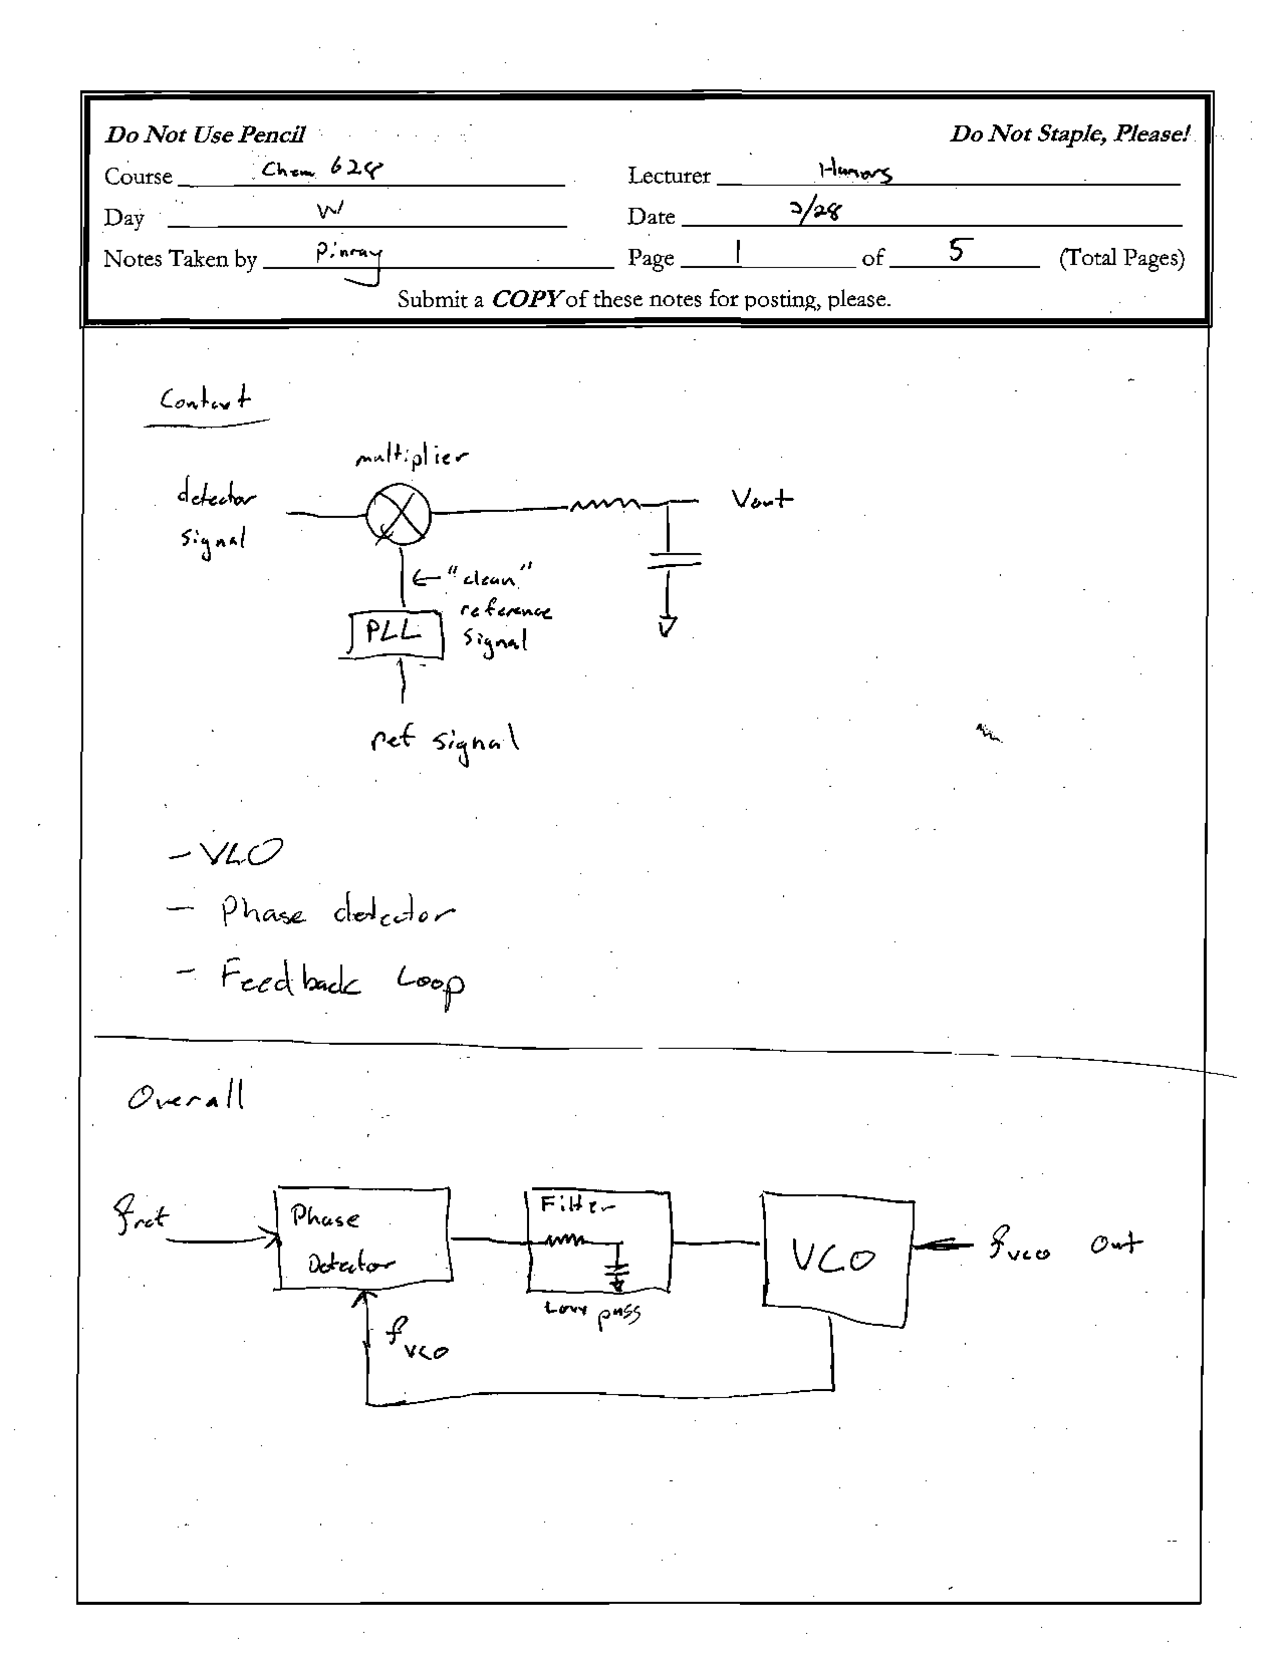 Do Not Use Pencil Do Not Staple, Please!
Course Chem 628 Lecturer
Day W Date 2/28
Notes Taken by Page 1 of 5 (Total Pages)
Submit a COPY of these notes for posting, please.
multiplier
detector
signal
Vout
← "clean"
reference
signal
PLL
ref signal
- VCO
- Phase detector
- Feedback Loop
Overall
fref
Phase
Detector
Filter
Low pass
VCO
fvco out
fvco